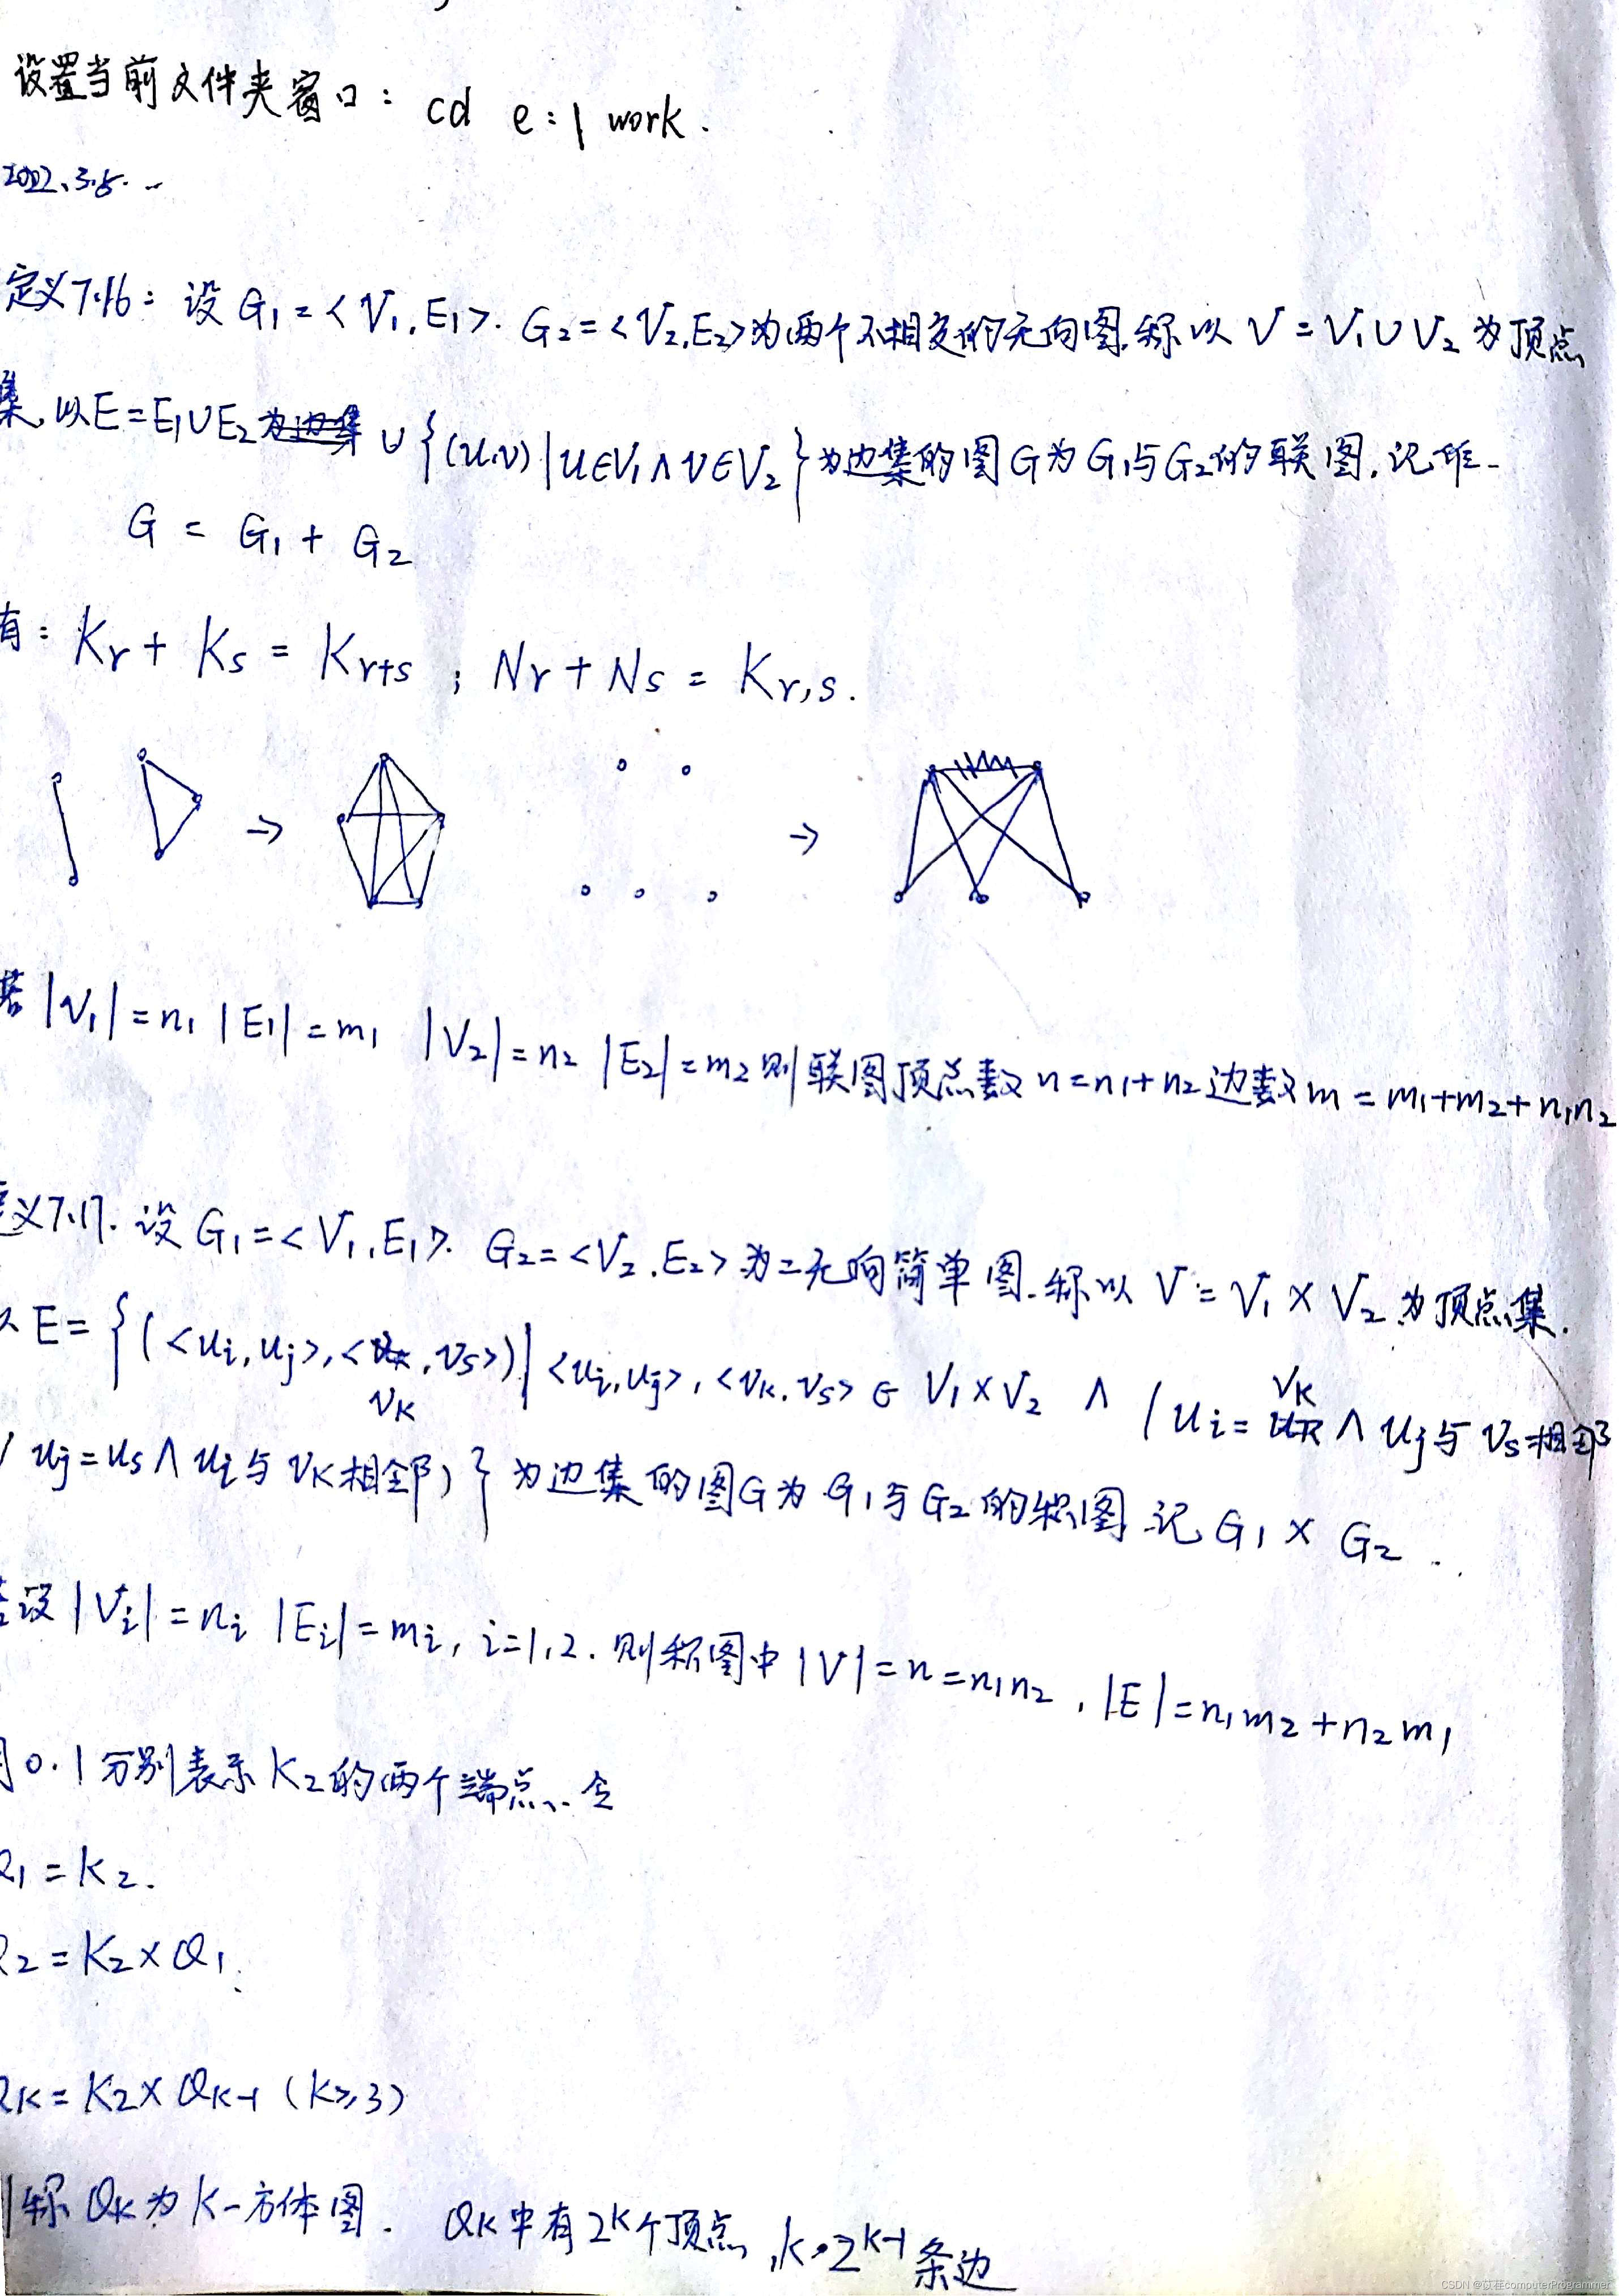 设置当前文件夹窗口: cd e:\ work.
2022.3.5.
定义7.16: 设 G₁=<V₁,E₁>. G₂=<V₂,E₂>为两个不相交的无向图.称以 V=V₁∪V₂ 为顶点
集,以E=E₁∪E₂ ∪{(u,v)|u∈V₁∧v∈V₂}为边集的图G为G₁与G₂的联图.记作
G = G₁ + G₂
有: Kr + Ks = Kr+s ; Nr + Ns = Kr,s.
→ →
若 |V₁|=n₁ |E₁|=m₁ |V₂|=n₂ |E₂|=m₂则联图顶点数 n=n₁+n₂边数m=m₁+m₂+n₁n₂
义7.17. 设 G₁=<V₁,E₁>. G₂=<V₂,E₂>为二无向简单图.称以 V=V₁×V₂为顶点集.
E={(<ui,uj>,<vk,vs>)|<ui,uj>,<vk,vs>∈V₁×V₂ ∧ (ui=vk∧uj与vs相邻
uj=us∧ui与vk相邻)}为边集的图G为G₁与G₂的积图 记 G₁×G₂.
设|Vi|=ni |Ei|=mi, i=1,2. 则积图中|V|=n=n₁n₂, |E|=n₁m₂+n₂m₁
0.1分别表示K₂的两个端点.令
Q₁=K₂.
Q₂=K₂×Q₁
Qk=K₂×Qk-1 (k≥3)
称Qk为k-方体图. Qk中有2ᵏ个顶点,k·2ᵏ⁻¹条边
CSDN @荻荏computerProgrammer